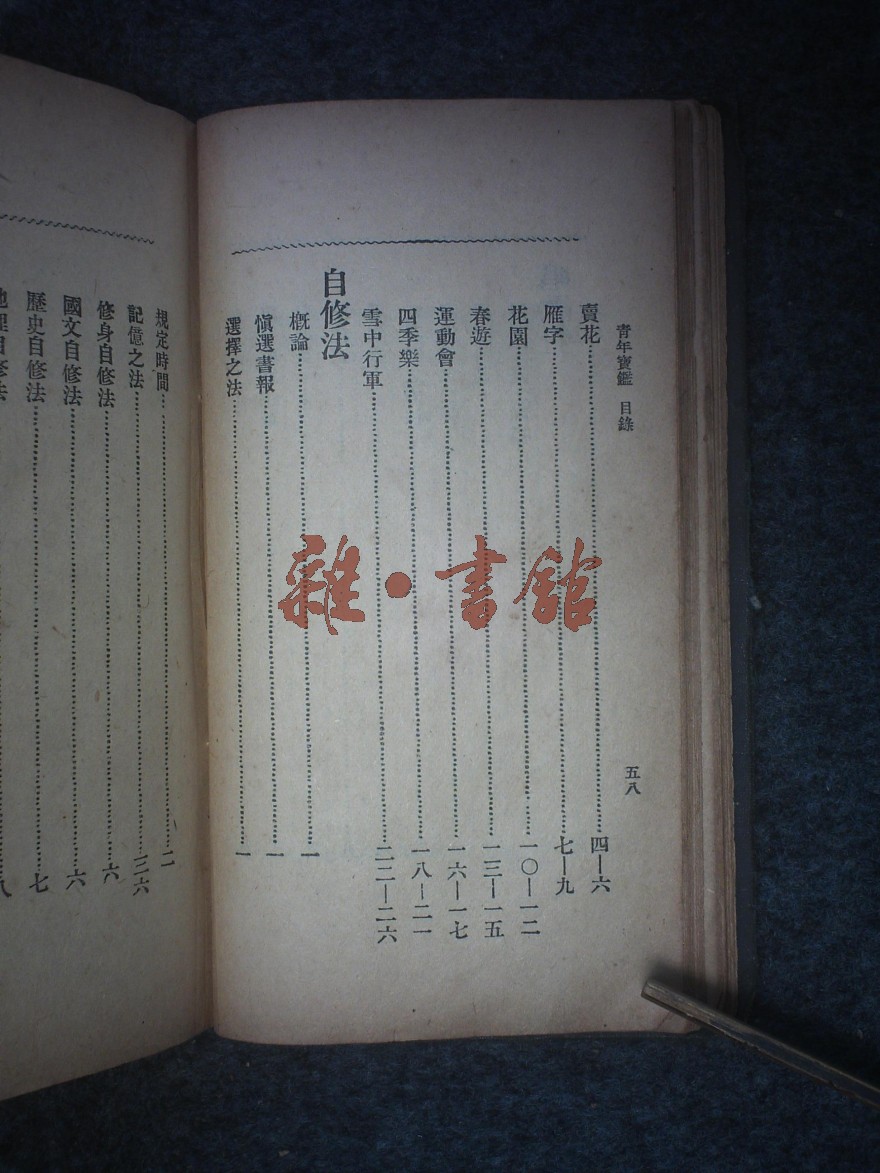 青年寶鑑 目錄
五八
賣花……四—六
雁字……七—九
花園……一〇—一二
春遊……一三—一五
運動會……一六—一七
四季樂……一八—二一
雪中行軍……二二—二六
自修法
概論……一
愼選書報……一
選擇之法……一
規定時間……二
記億之法……三六
修身自修法……六
國文自修法……六
歷史自修法……七
地理自修法……八
雜·書館